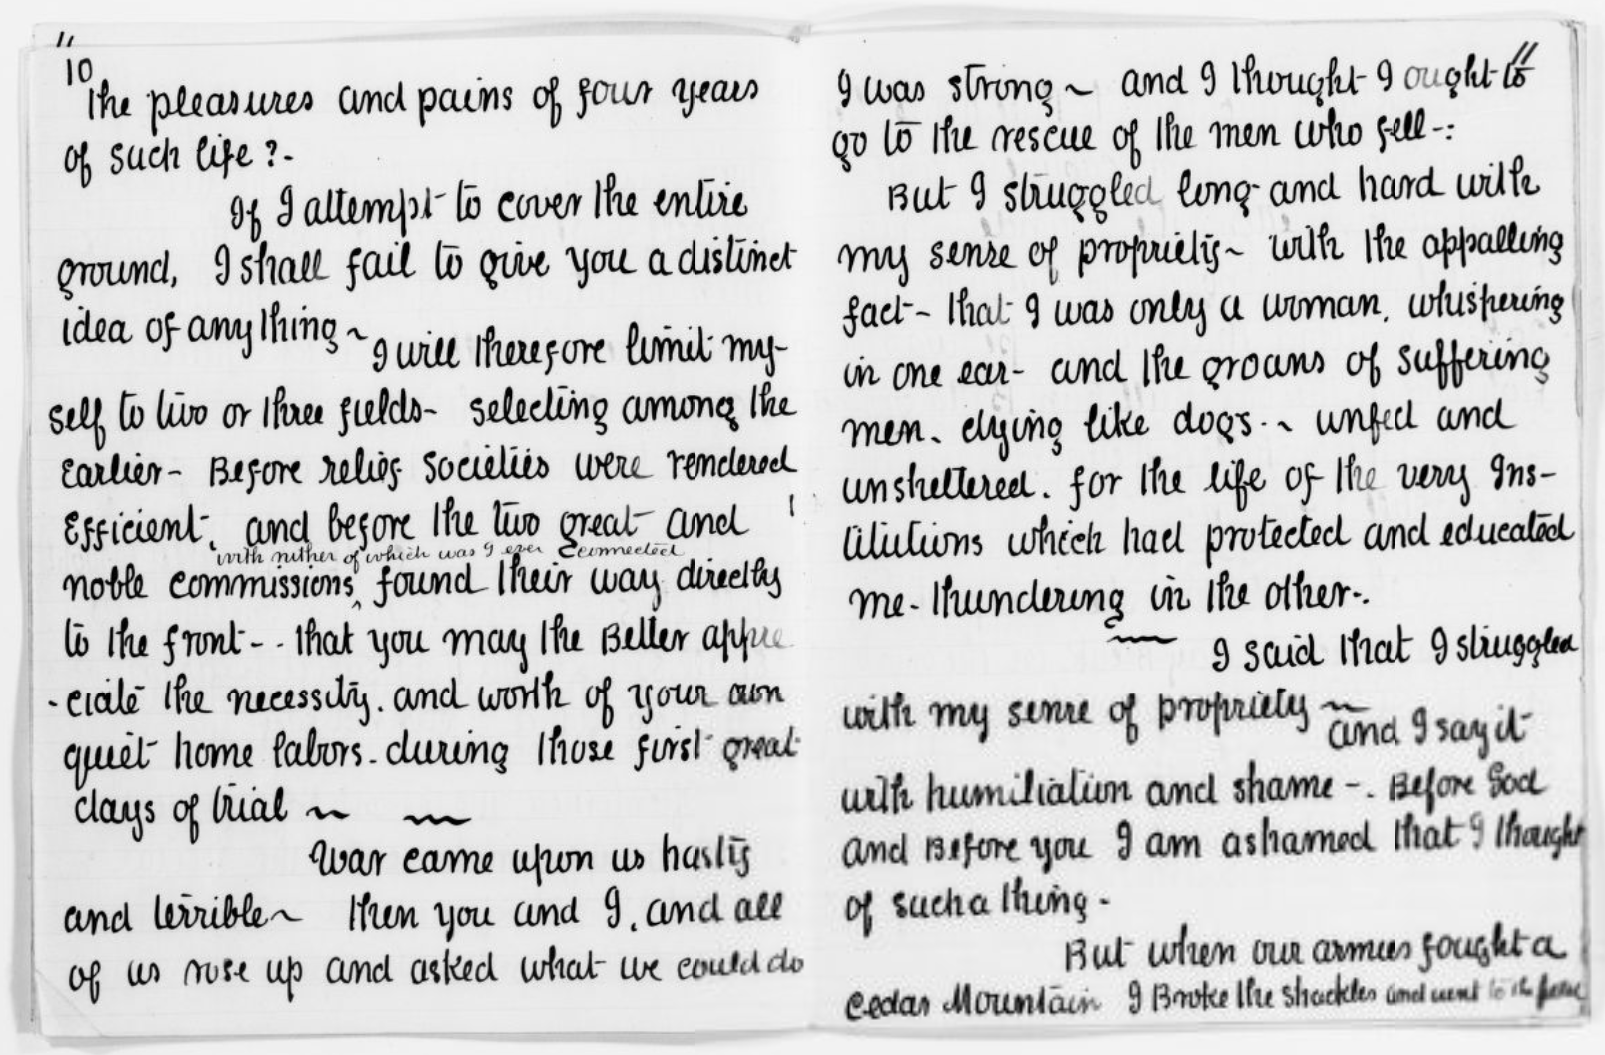 10
the pleasures and pains of four years
of such life?-
If I attempt to cover the entire
ground, I shall fail to give you a distinct
idea of anything~ I will therefore limit my-
self to two or three fields- selecting among the
Earlier- Before relief societies were rendered
Efficient, and before the two great and
with nither of which was I ever connected
noble commissions, found their way directly
to the front-- that you may the Better appre
-ciate the necessity. and worth of your own
quiet home labors. during those first great
days of trial ~ ~
War came upon us hasty
and terrible~ then you and I, and all
of us rose up and asked what we could do
11
I was strong~ and I thought I ought to
go to the rescue of the men who fell-:
But I struggled long and hard with
my sense of propriety~ with the appalling
fact- that I was only a woman, whispering
in one ear- and the groans of suffering
men. dying like dogs.~ unfed and
unsheltered. for the life of the very Ins-
titutions which had protected and educated
me- thundering in the other-.
~ I said that I struggled
with my sense of propriety ~ and I say it
with humiliation and shame -. Before God
and Before you I am ashamed that I thought
of such a thing-
But when our armies fought a
Cedar Mountain I Broke the shackles and went to the